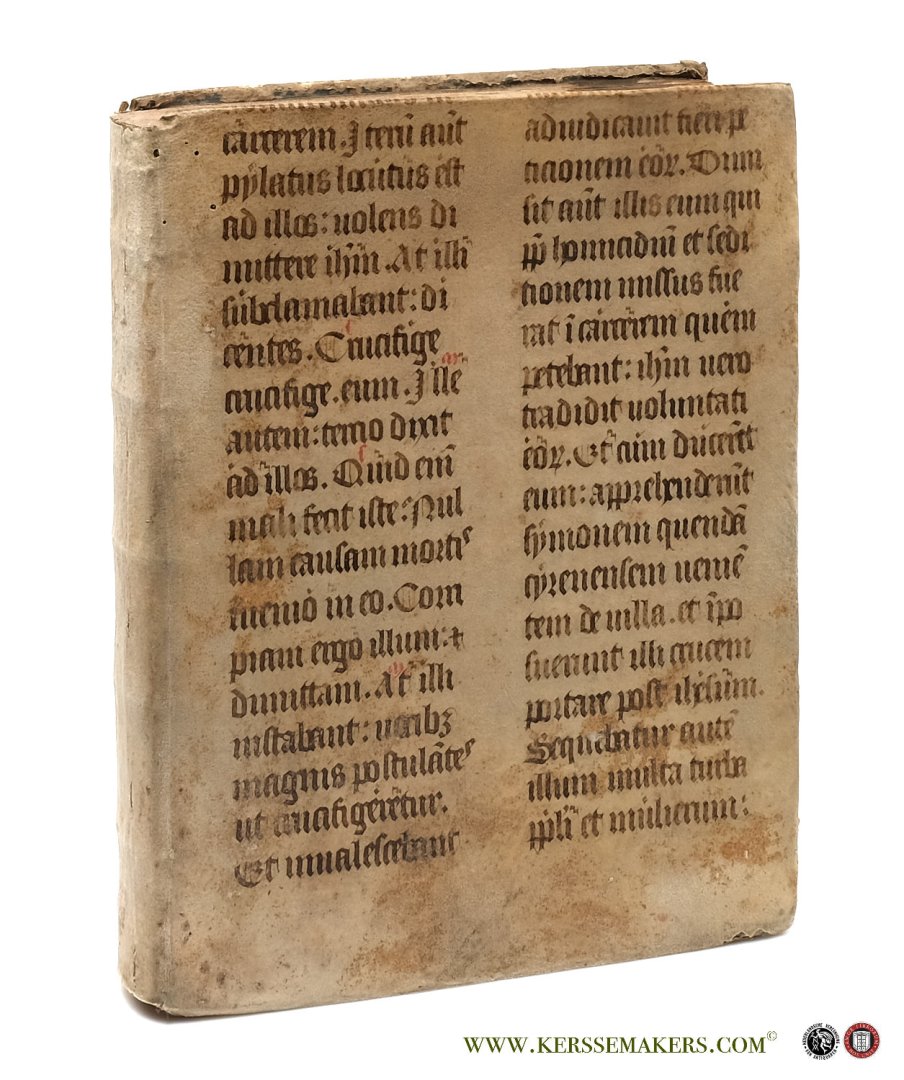 carcerem. Iterū aūt
pylatus locutus est
ad illos: uolens di
mittere ihm̄. At illi
subclamabant: di
centes. Crucifige
crucifige. eum. Ille
autem: tercio dixit
ad illos. Quid enī
mali fecit iste: Nul
lam causam mortis
inuenio in eo. Corri
piam ergo illum: ⁊
dimittam. At illi
instabant: uocibꝫ
magnis postulātes
ut crucifigerētur.
Et inualescebant
adiudicauit fieri pe
ticionem eoꝝ. Dim
sit aūt illis eum qui
ꝓp̄ homicidiū et sedi
tionem missus fue
rat ī carcerem quem
petebant: ihm̄ uero
tradidit uoluntati
eoꝝ. Et cum ducerēt
eum: apprehenderūt
symonem quendā
cyrenensem ueniē
tem de uilla. et īpo
suerunt illi crucem
portare post ihesum.
Sequebatur autē
illum multa turba
ppli et mulierum:
WWW.KERSSEMAKERS.COM©